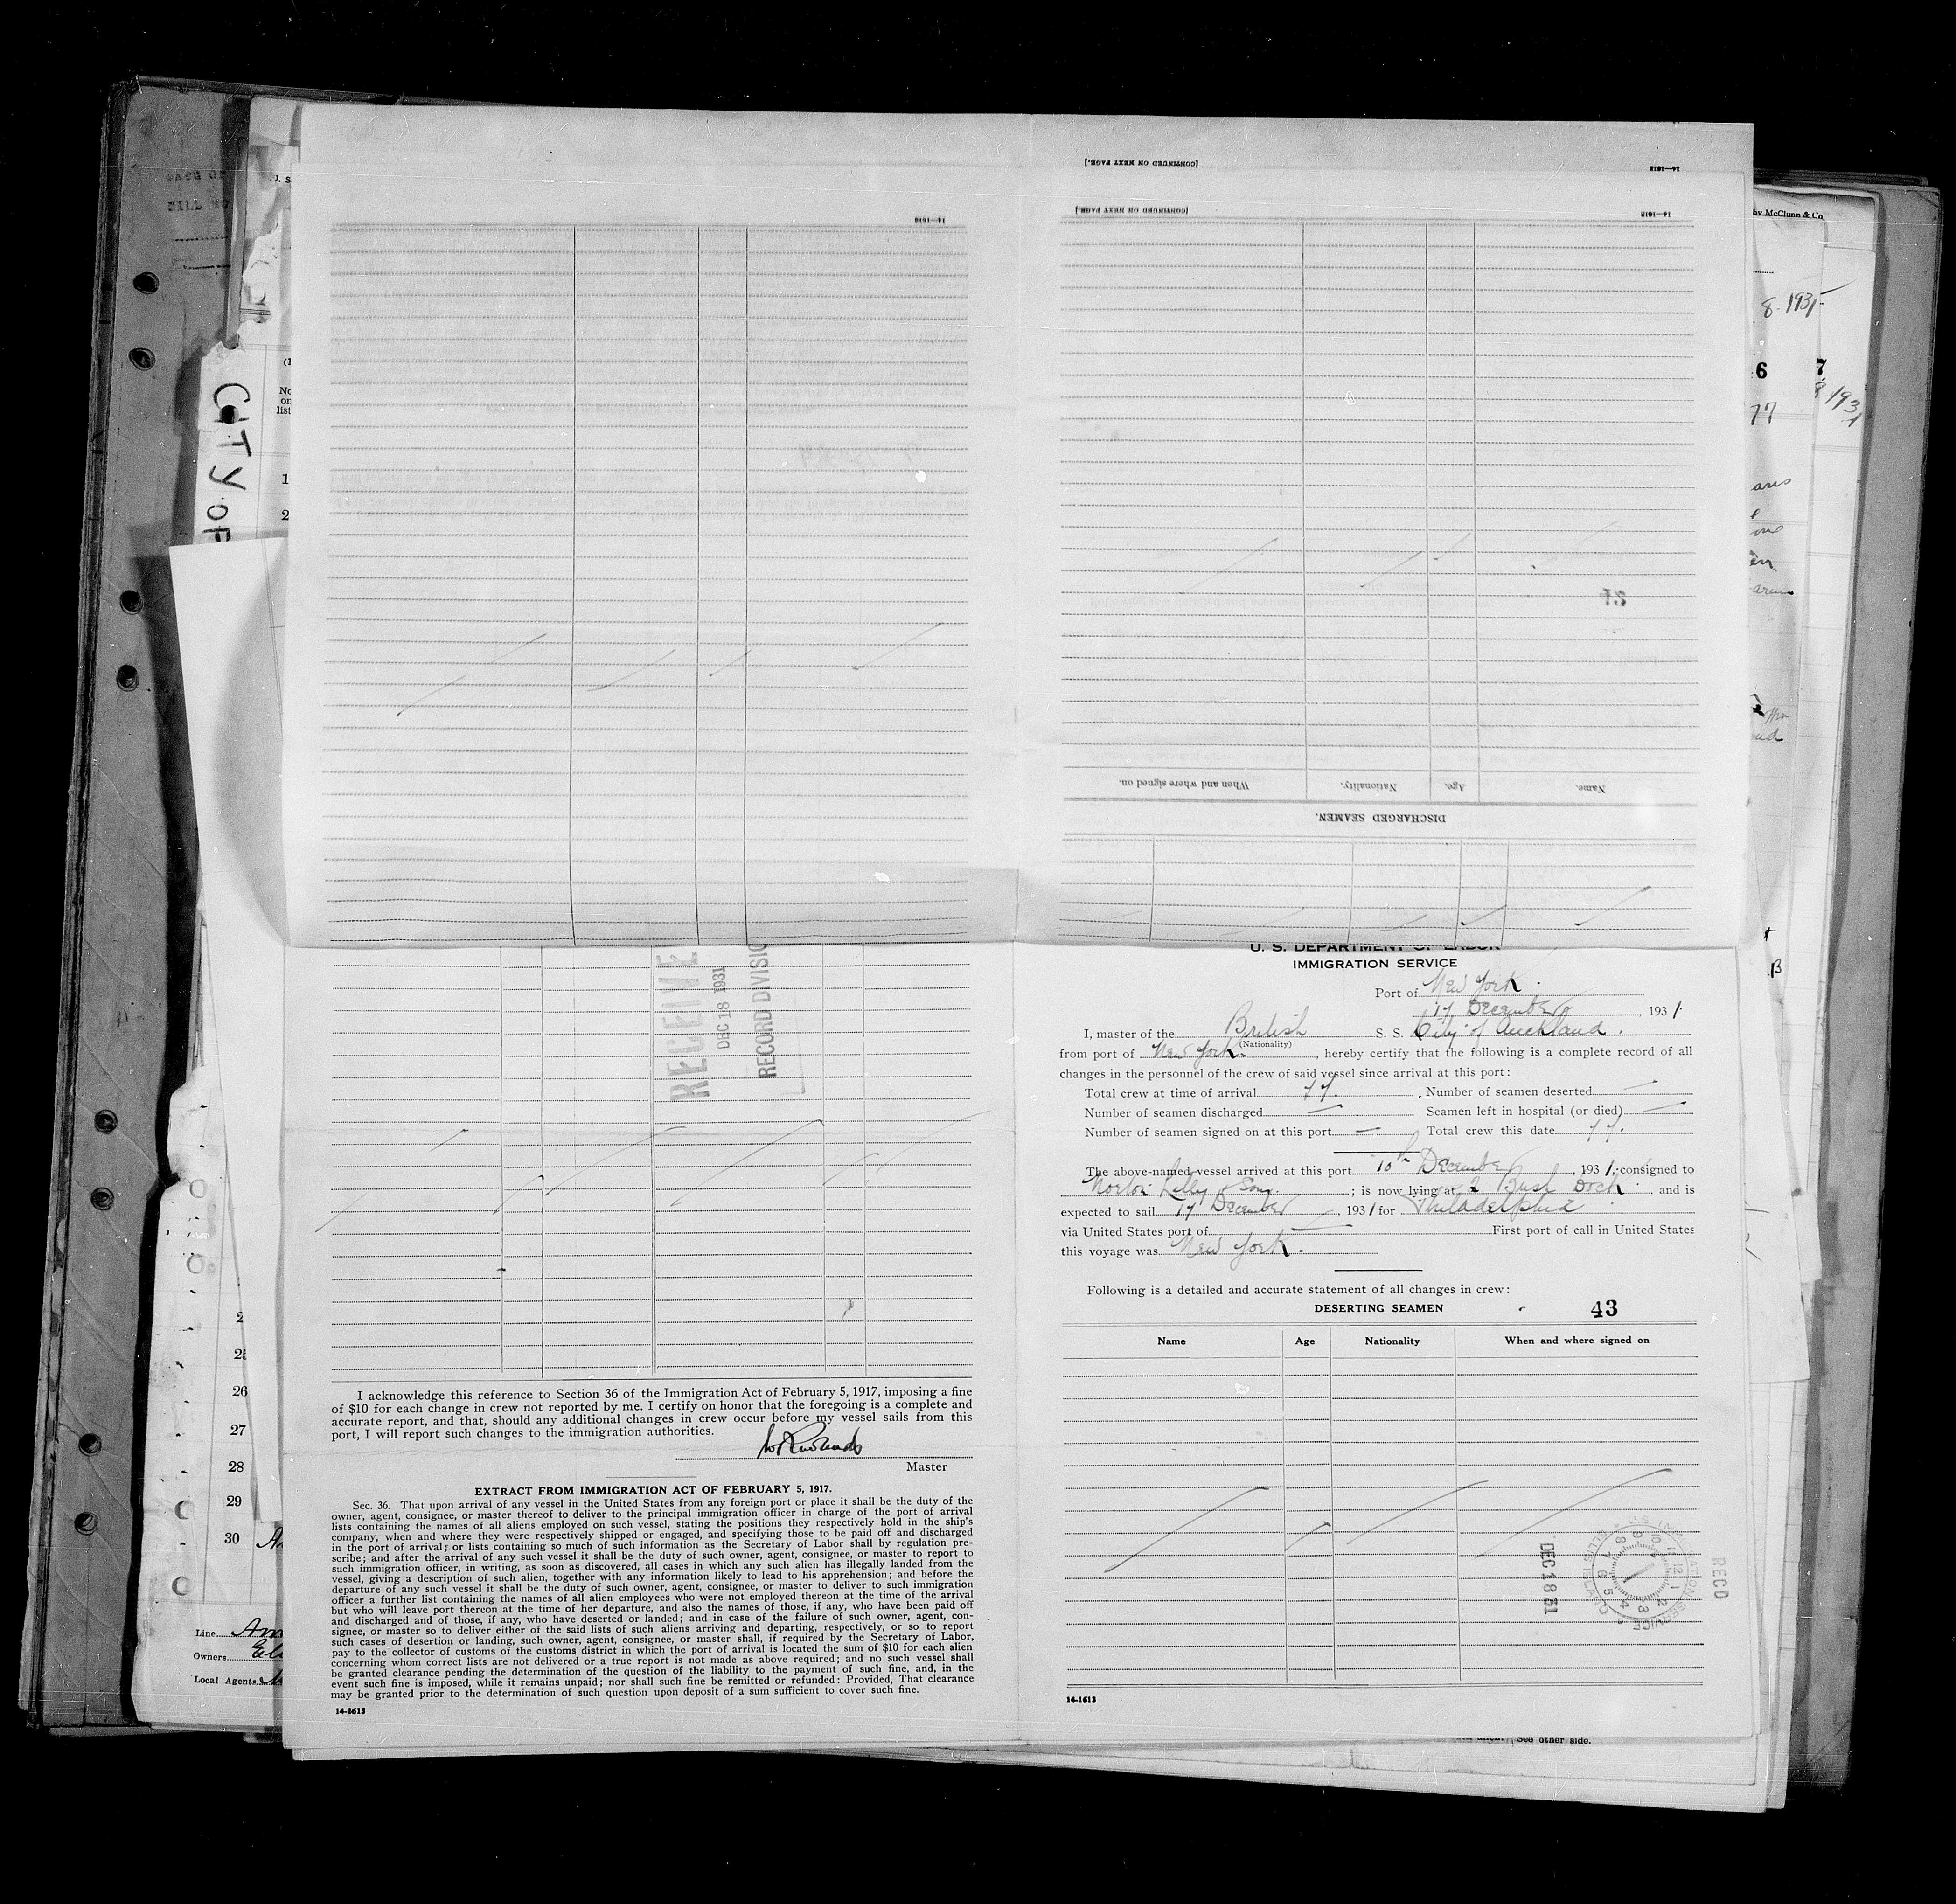 [CONTINUED ON NEXT PAGE.]
14—1613
14—1613
[CONTINUED ON NEXT PAGE.]
14—1613
by McClunn & Co
8 1931
6
7
77
CITY OF
1
2
Name.
Age.
Nationality.
When and where signed on.
DISCHARGED SEAMEN.
RECEIVE
DEC 18 1931
RECORD DIVISIO
U. S. DEPARTMENT OF LABOR
IMMIGRATION SERVICE
Port of New York.
17 December, 1931.
I, master of the British S. S. City of Auckland.
(Nationality)
from port of New York., hereby certify that the following is a complete record of all
changes in the personnel of the crew of said vessel since arrival at this port:
Total crew at time of arrival 77. Number of seamen deserted —
Number of seamen discharged — Seamen left in hospital (or died) —
Number of seamen signed on at this port — Total crew this date 77.
The above-named vessel arrived at this port 10th December, 1931, consigned to
Norton Lilly & Sons.; is now lying at 2 Bush Dock, and is
expected to sail 17 December, 1931 for Philadelphia
via United States port of — First port of call in United States
this voyage was New York.
Following is a detailed and accurate statement of all changes in crew:
DESERTING SEAMEN
43
Name Age Nationality When and where signed on
DEC 18 31
U. S. IMMIGRATION SERVICE ELLIS ISLAND
RECD
14-1613
I acknowledge this reference to Section 36 of the Immigration Act of February 5, 1917, imposing a fine
of $10 for each change in crew not reported by me. I certify on honor that the foregoing is a complete and
accurate report, and that, should any additional changes in crew occur before my vessel sails from this
port, I will report such changes to the immigration authorities.
Master
EXTRACT FROM IMMIGRATION ACT OF FEBRUARY 5, 1917.
Sec. 36. That upon arrival of any vessel in the United States from any foreign port or place it shall be the duty of the
owner, agent, consignee, or master thereof to deliver to the principal immigration officer in charge of the port of arrival
lists containing the names of all aliens employed on such vessel, stating the positions they respectively hold in the ship's
company, when and where they were respectively shipped or engaged, and specifying those to be paid off and discharged
in the port of arrival; or lists containing so much of such information as the Secretary of Labor shall by regulation pre-
scribe; and after the arrival of any such vessel it shall be the duty of such owner, agent, consignee, or master to report to
such immigration officer, in writing, as soon as discovered, all cases in which any such alien has illegally landed from the
vessel, giving a description of such alien, together with any information likely to lead to his apprehension; and before the
departure of any such vessel it shall be the duty of such owner, agent, consignee, or master to deliver to such immigration
officer a further list containing the names of all alien employees who were not employed thereon at the time of the arrival
but who will leave port thereon at the time of her departure, and also the names of those, if any, who have been paid off
and discharged and of those, if any, who have deserted or landed; and in case of the failure of such owner, agent, con-
signee, or master so to deliver either of the said lists of such aliens arriving and departing, respectively, or so to report
such cases of desertion or landing, such owner, agent, consignee, or master shall, if required by the Secretary of Labor,
pay to the collector of customs of the customs district in which the port of arrival is located the sum of $10 for each alien
concerning whom correct lists are not delivered or a true report is not made as above required; and no such vessel shall
be granted clearance pending the determination of the question of the liability to the payment of such fine, and, in the
event such fine is imposed, while it remains unpaid; nor shall such fine be remitted or refunded: Provided, That clearance
may be granted prior to the determination of such question upon deposit of a sum sufficient to cover such fine.
14-1613
26
27
28
29
30
Line
Owners
Local Agents
See other side.